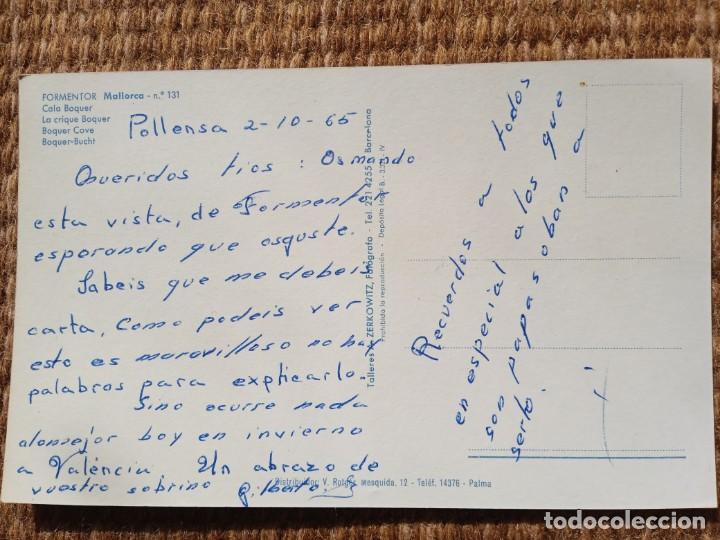 FORMENTOR Mallorca - n.° 131
Cala Boquer
La crique Boquer
Boquer Cove
Boquer-Bucht
Pollensa 2-10-65
Queridos tios: Os mando
esta vista, de Formentor
esporando que os guste.
Sabeis que me debeis
carta, Como podeis ver
esto es maravilloso no hay
palabras para explicarlo.
Si no ocurre nada
alomejor boy en invierno
a València. Un abrazo de
vuestro sobrino
Talleres A. ZERKOWITZ, Fotógrafo - Tel. 221 4255 - Barcelona
Prohibida la reproducción - Depósito Legal B.
Recuerdos a todos
en especial a los que
son papas oban a
serlo.
Distribuidor: V. Rotger, Mesquida, 12 - Teléf. 14376 - Palma
todocoleccion.net